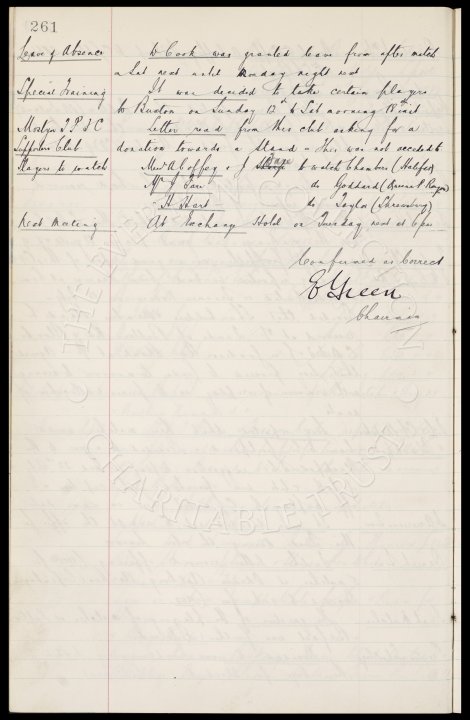 261
Leave of Absence W Cook was granted leave from after match
on Sat next until Monday night next
Special Training It was decided to take certain players
to Buxton on Sunday 12th to Sat morning 18th inst
Mostyn Y P F C Letter read from this club asking for a
Supporters Club donation towards a Stand - this was not acceded to
Players to watch Messrs A Coffey & J to watch Chambers (Halifax)
Mr J do Goddard
" H Hart do Taylor (Shrewsbury)
Next Meeting At Exchange Hotel on Tuesday next at 6 pm
Confirmed as Correct
E Green
Chairman
© THE EVERTON COLLECTION
CHARITABLE TRUST